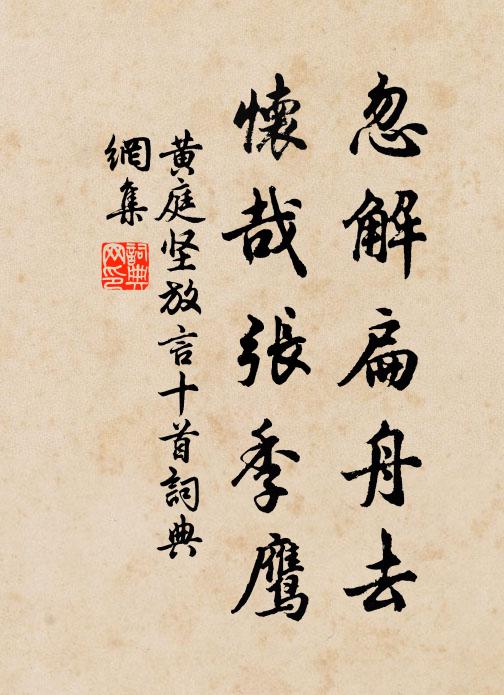 忽解扁舟去
懷哉張季鷹
黃庭坚放言十首詞典
網集
詞典
网印